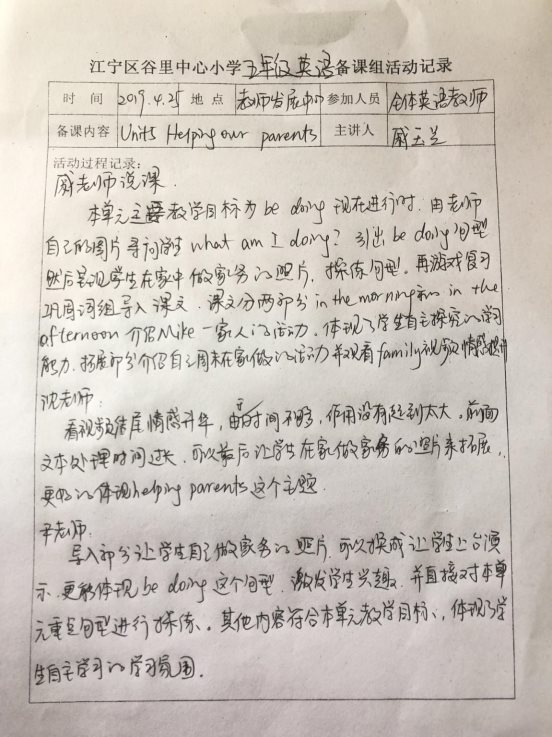 江宁区谷里中心小学五年级英语备课组活动记录
时 间 2019.4.25 地 点 教师发展中心 参加人员 全体英语教师
备课内容 Unit5 Helping our parents 主讲人 戚玉兰
活动过程记录：
戚老师说课.
本单元主要教学目标为 be doing 现在进行时. 由老师
自己的图片寻问学生 what am I doing? 引出 be doing 句型
然后呈现学生在家中做家务的照片, 操练句型. 再游戏复习
巩固词组导入课文. 课文分两部分 in the morning 和 in the
afternoon 介绍Mike一家人的活动. 体现了学生自主探究的学习
能力. 拓展部分介绍自己周末在家做的活动并观看family视频情感提升
沈老师:
看视频结尾情感升华, 由于时间不够, 作用没有起到太大. 前面
文本处理时间过长. 可以最后让学生在家做家务的照片来拓展,
更好的体现helping parents这个主题.
老师.
导入部分让学生自己做家务的照片, 可以换成让学生上台演
示. 更能体现 be doing 这个句型. 激发学生兴趣. 并直接对本单
元重点句型进行操练. 其他内容符合本单元教学目标, 体现了学
生自主学习的学习氛围.